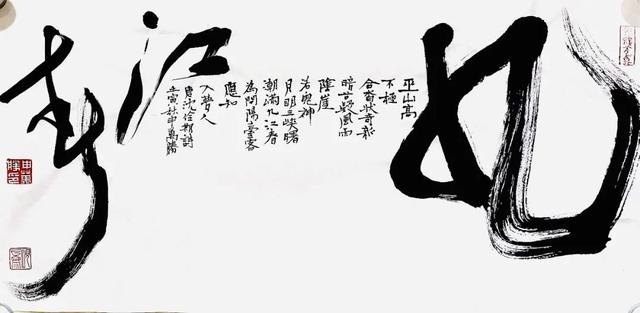 九江春
巫山高
不極
合沓狀奇新
暗谷疑風雨
陰崖
若鬼神
月明三峽曙
潮滿九江春
為問陽臺客
應知
入夢人
唐沈佺期詩
壬寅秋申萬勝
申萬
勝印